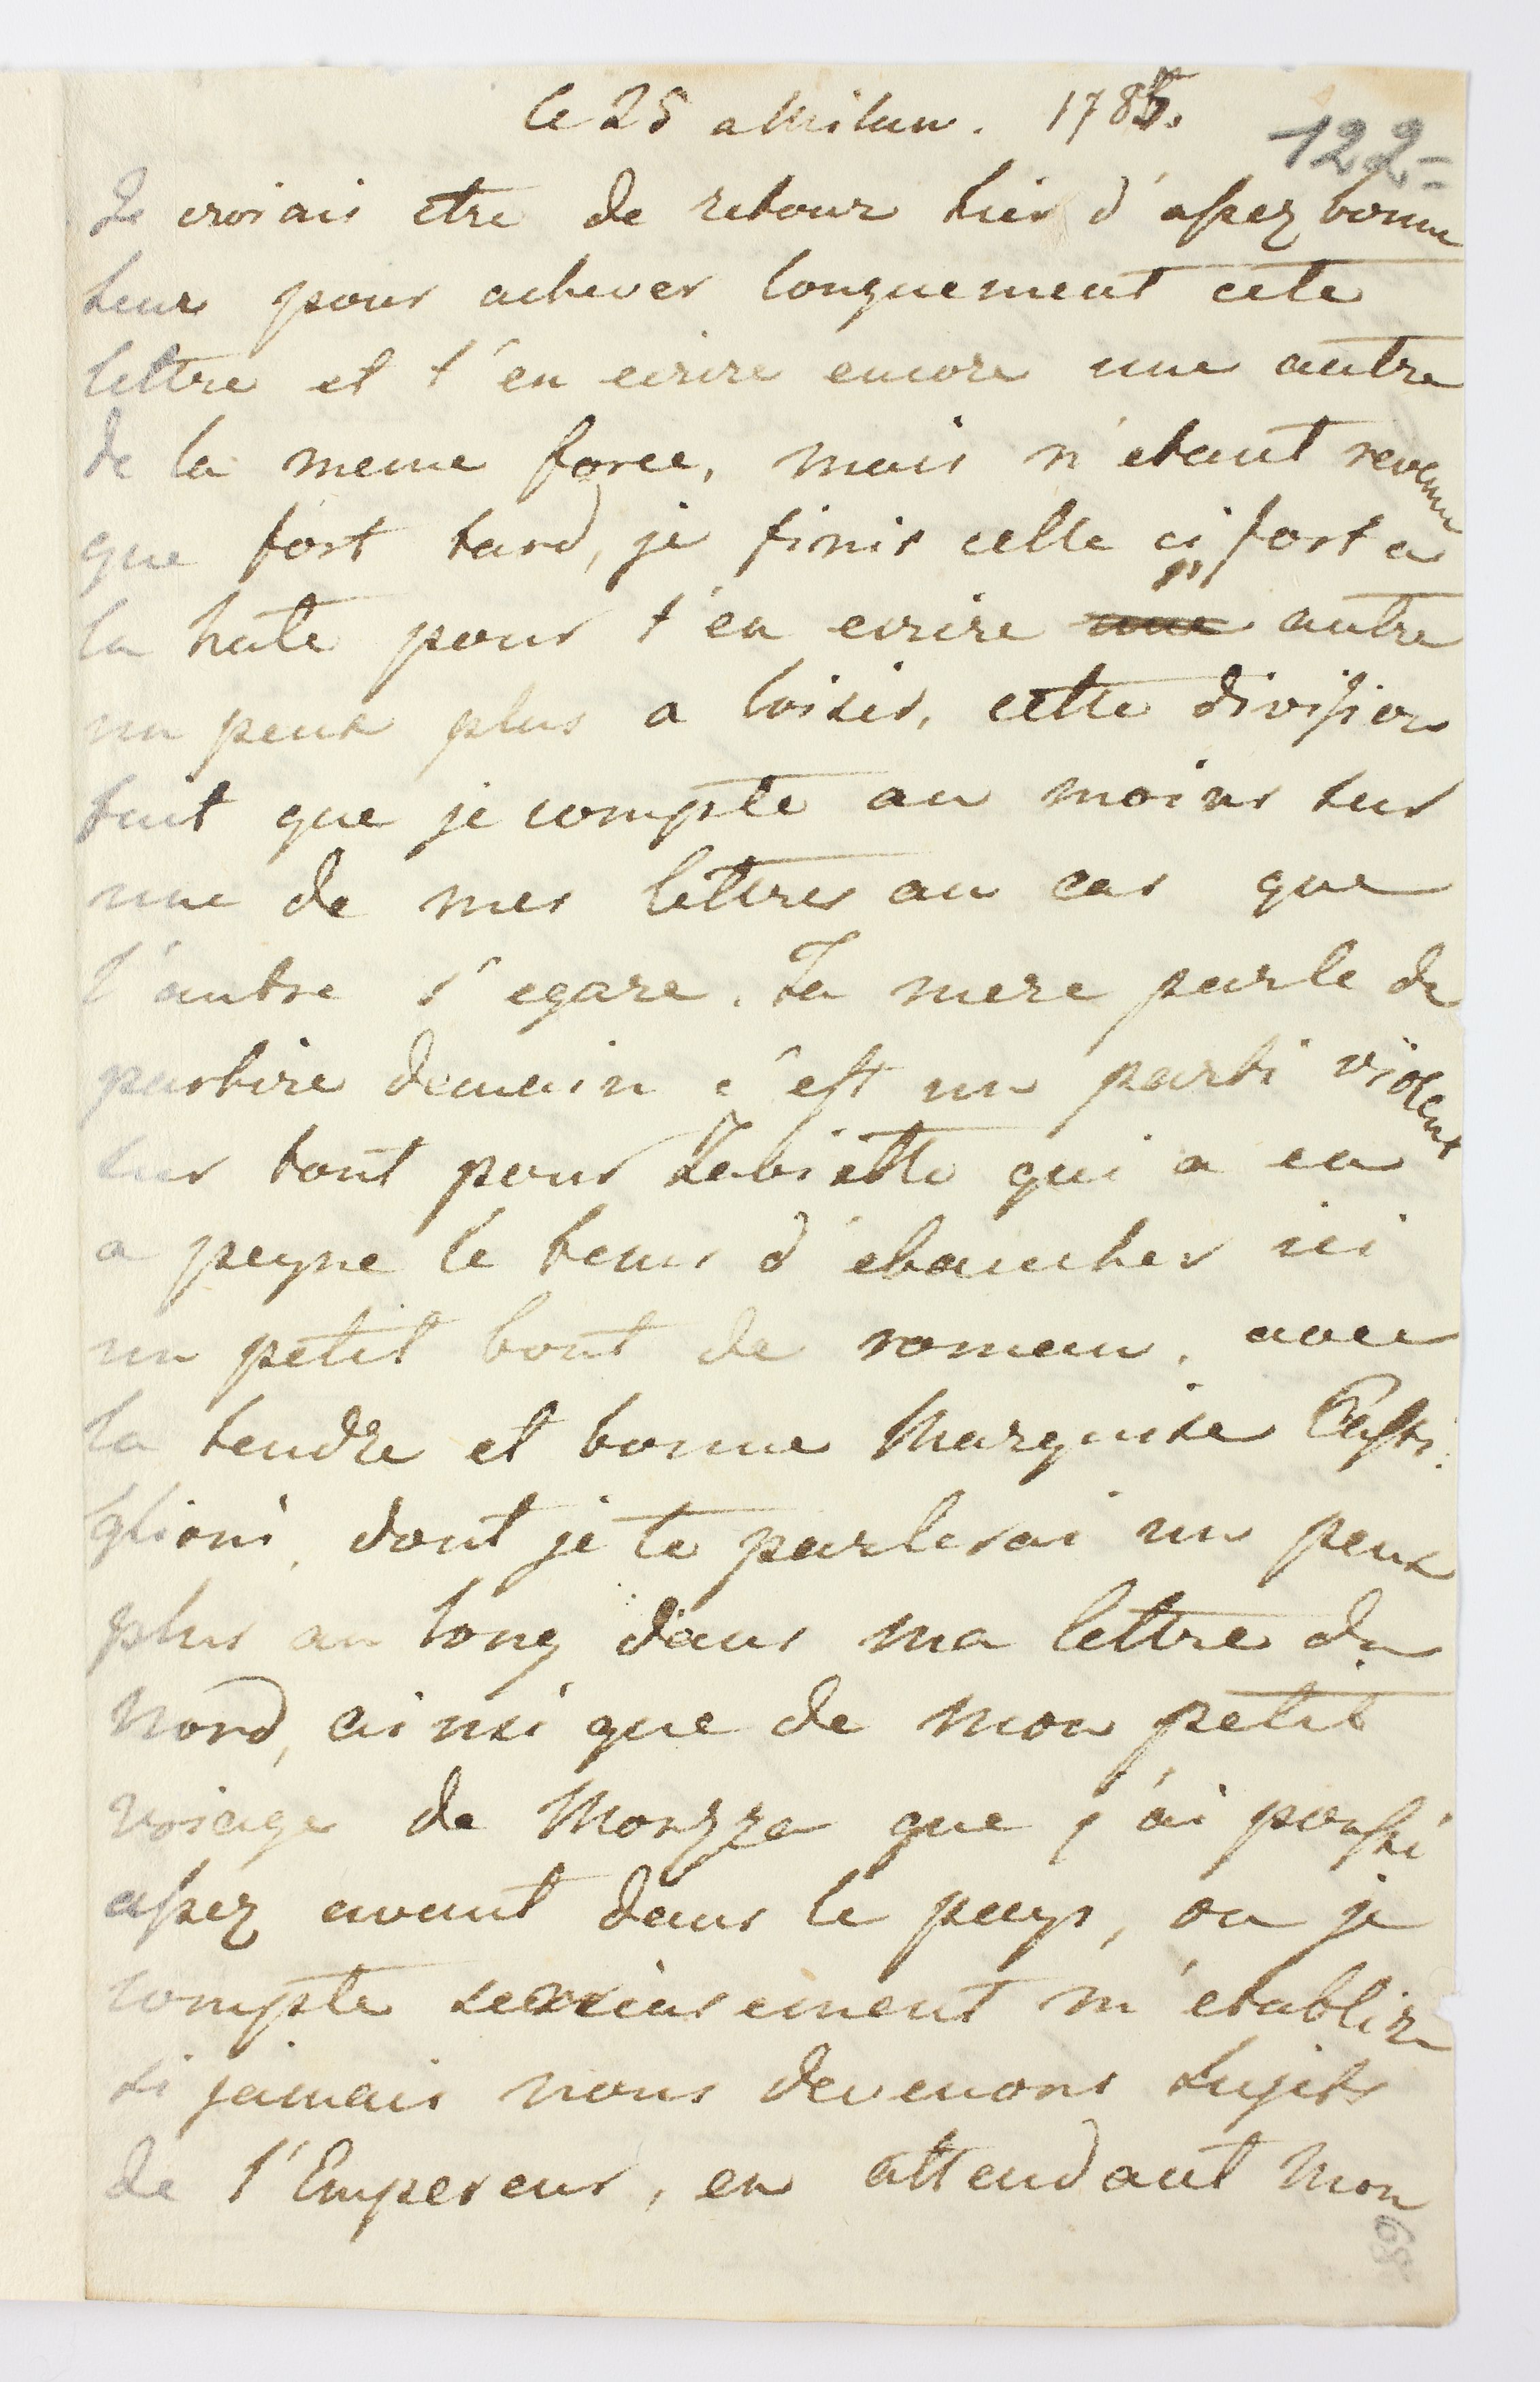 le 25 a Milan. 1785.
122-
Je croiais etre de retour hier d'assez bonne
heure pour achever longuement cete
lettre et t'en ecrire encore une autre
de la meme force, mais n'etant revenu
que fort tard, je finis celle ci fort a
la hate pour t'en ecrire une autre
un peux plus a loisir, cette division
fait que je compte au moins sur
une de mes lettres au cas que
l'autre s'egare. Ta mere parle de
partire demain c'est un parti violent
sur tout pour Zabiette qui a eu
a peyne le tems d'ebaucher ici
un petit bout de roman, avec
la tendre et bonne Marquise Casti:
glioni, dont je te parlerai un peux
plus au long dans ma lettre du
Nord, ainsi que de mon petit
voiage de Monzza que j'ai poussé
assez avant dans le pays, ou je
compte serieusement m'etablire
si jamais nous devenons sujets
de l'Empereur, en attendant mon
68